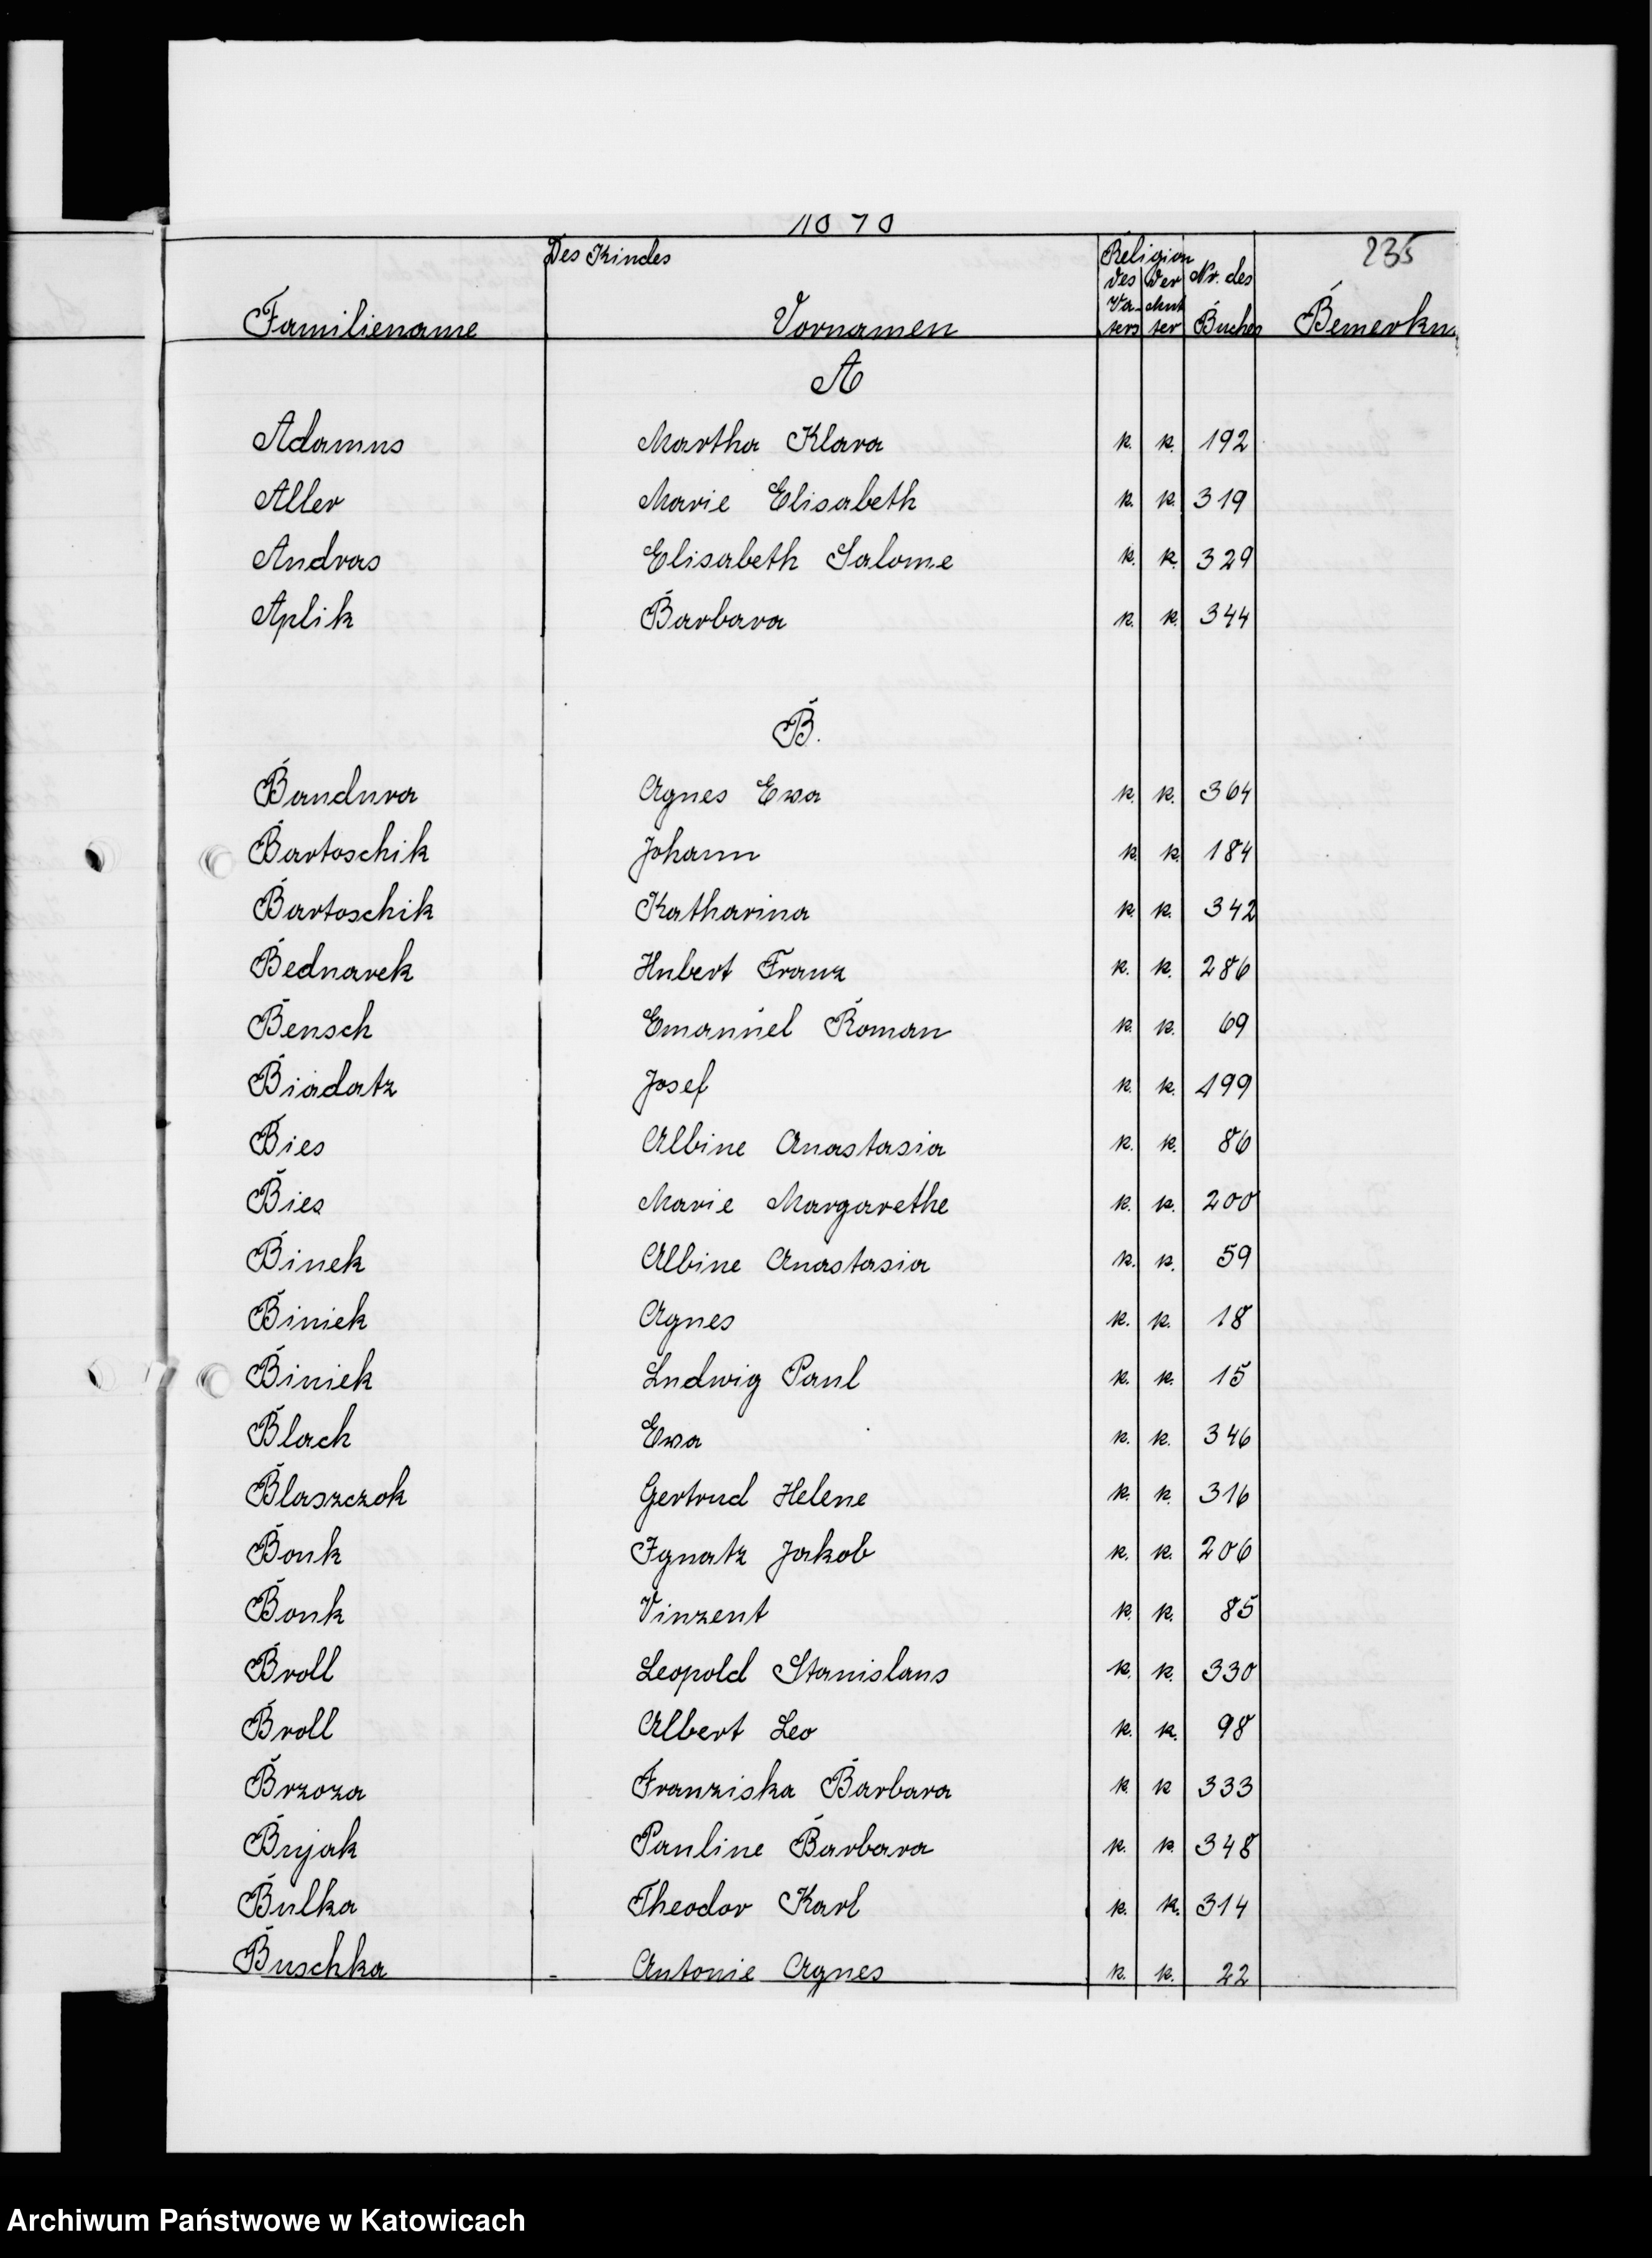 235
Des Kindes Religion
Familienname Vornamen des Vaters der Mutter Nr. des Buches Bemerkun
A
Adamus Martha Klara k. k. 192
Aller Marie Elisabeth k. k. 319
Andras Elisabeth Salome k. k. 329
Aplik Barbara k. k. 344
B.
Bandura Agnes Ewa k. k. 364
Bartoschik Johann k. k. 184
Bartoschik Katharina k. k. 342
Bednarek Hubert Franz k. k. 286
Bensch Emanuel Roman k. k. 69
Biadatz Josef k. k. 199
Bies Albine Anastasia k. k. 86
Bies Marie Margarethe k. k. 200
Binek Albine Anastasia k. k. 59
Biniek Agnes k. k. 18
Biniek Ludwig Paul k. k. 15
Blach Ewa k. k. 346
Blaszczok Gertrud Helene k. k. 316
Bonk Ignatz Jakob k. k. 206
Bonk Vinzent k. k. 85
Broll Leopold Stanislaus k. k. 330
Broll Albert Leo k. k. 98
Brzoza Franziska Barbara k. k 333
Bujak Pauline Barbara k. k. 348
Bulka Theodor Karl k. k. 314
Buschka Antonie Agnes k. k. 22
Archiwum Państwowe w Katowicach